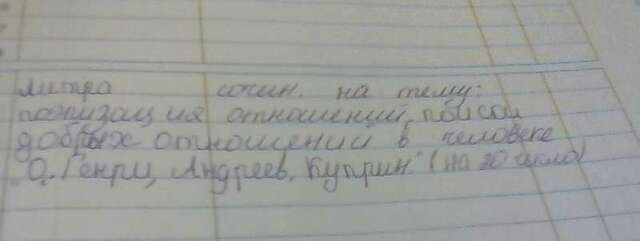 литра сочин. на тему:
поэтизация отношений, поиски
добрых отношений в человеке
О. Генри, Андреев, Куприн (на 20 число)